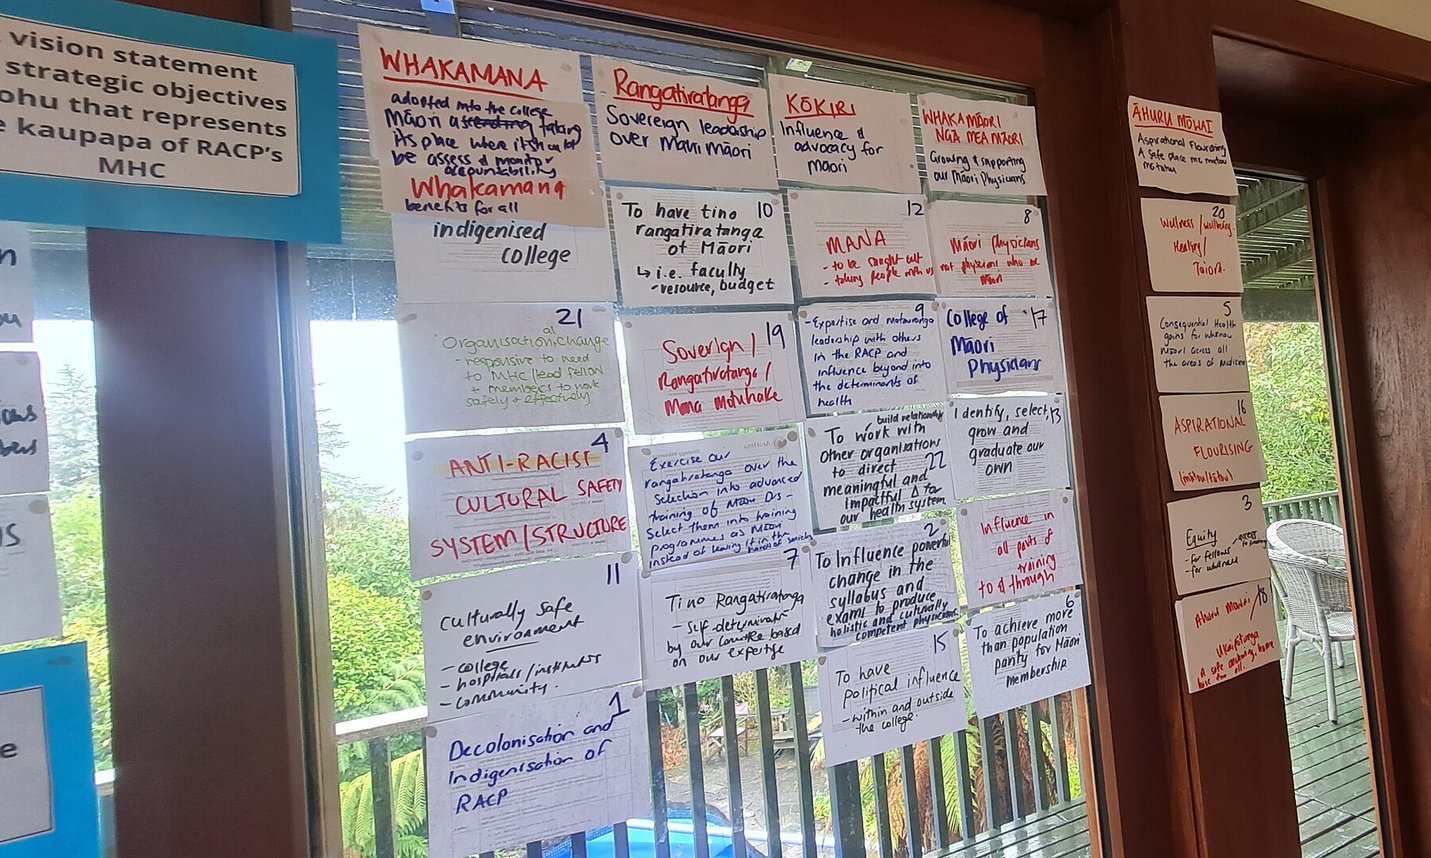 vision statement
strategic objectives
ohu that represents
e kaupapa of RACP's
MHC
WHAKAMANA
adopted into the college
Māori ascending taking
its place where it should
be assess & monitor
accountability
Whakamana
benefits for all
indigenised
college
21
Organisational change
- responsive to need
to MHC/lead fellow
+ members to work
safely + effectively
4
ANTI-RACIST
CULTURAL SAFETY
SYSTEM/STRUCTURE
11
Culturally safe
environment
- college
- hospitals/institutes
- community.
1
Decolonisation and
Indigenisation of
RACP
Rangatiratanga
Sovereign leadership
over Mauri Māori
10
To have tino
rangatiratanga
of Māori
↳ i.e. faculty
- resource, budget
19
Soverign/
Rangatiratanga/
Mana Motuhake
Exercise our
rangatiratanga over the
Selection into advanced
training of Māori Drs -
Select them into training
programmes as Māori
instead of leaving it in the
hands of society
7
Tino Rangatiratanga
- self-determination
by our committee based
on our expertise
KŌKIRI
Influence &
advocacy for
Māori
12
MANA
- to be sought out
- taking people with us
9
- Expertise and mātauranga
leadership with others
in the RACP and
influence beyond into
the determinants of
health
build relationship
To work with
other organisations
to direct
22
meaningful and
impactful Δ for
our health system
2
To Influence powerful
change in the
syllabus and
exams to produce
holistic and culturally
competent physicians.
15
To have
political influence
- within and outside
the college.
WHAKAMĀORI
NGA MEA MĀORI
Growing & supporting
our Māori Physicians
8
Māori physicians
not physicians who are
Māori
17
College of
Māori
Physicians
13
Identify, select,
grow and
graduate our
own
Influence in
all parts of
training
to & through
6
To achieve more
than population
parity for Māori
Membership
ĀHURU MŌWAI
Aspirational Flourishing
A safe place me
20
Wellness/wellbeing
Healing/
Taiora.
5
Consequential Health
gains for whānau
Māori across all
the areas of medicine
16
ASPIRATIONAL
FLOURISING
3
Equity
- for fellows
- for whānau
access
18
Ahuru Mowai/
Ukaipotanga
A safe
home
base for all